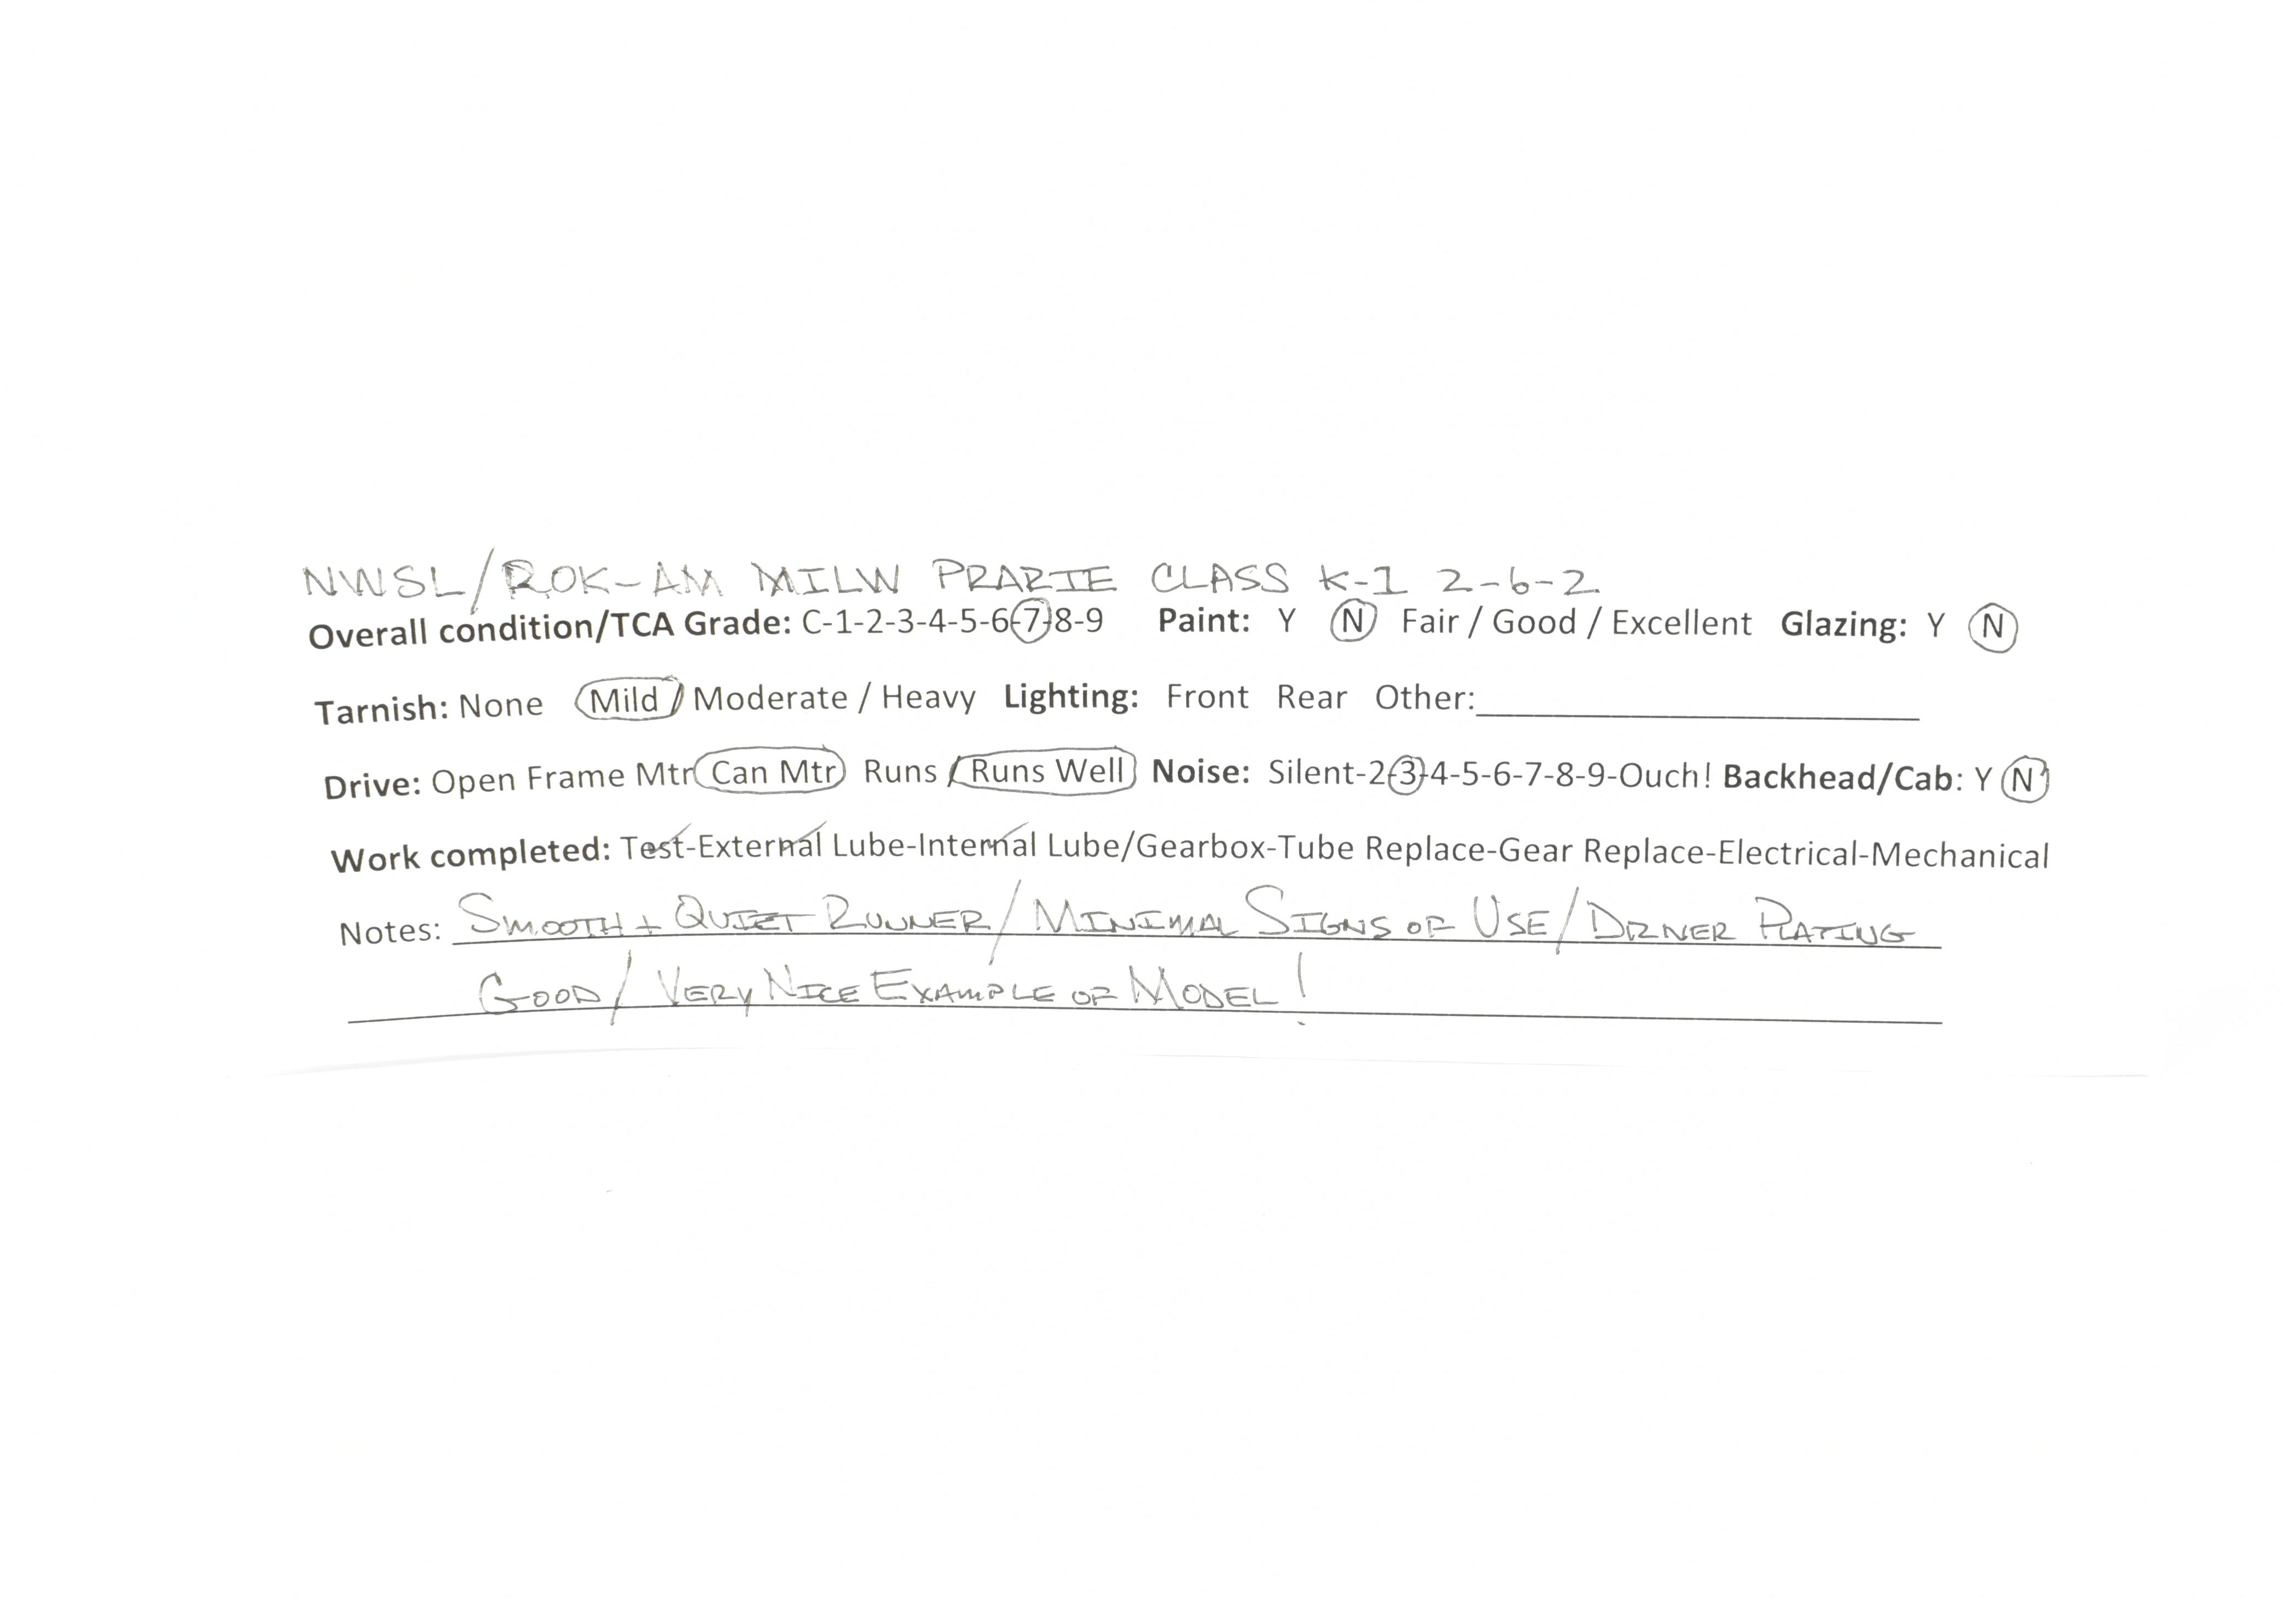 NWSL/ROK-AM MILW PRARIE CLASS K-1 2-6-2
Overall condition/TCA Grade: C-1-2-3-4-5-6-7-8-9 Paint: Y N Fair / Good / Excellent Glazing: Y N
Tarnish: None Mild / Moderate / Heavy Lighting: Front Rear Other:
Drive: Open Frame Mtr Can Mtr Runs / Runs Well Noise: Silent-2-3-4-5-6-7-8-9-Ouch! Backhead/Cab: Y N
Work completed: Test-External Lube-Internal Lube/Gearbox-Tube Replace-Gear Replace-Electrical-Mechanical
Notes: SMOOTH + QUIET RUNNER / MINIMAL SIGNS OF USE / DRIVER PLATING
GOOD / VERY NICE EXAMPLE OF MODEL!